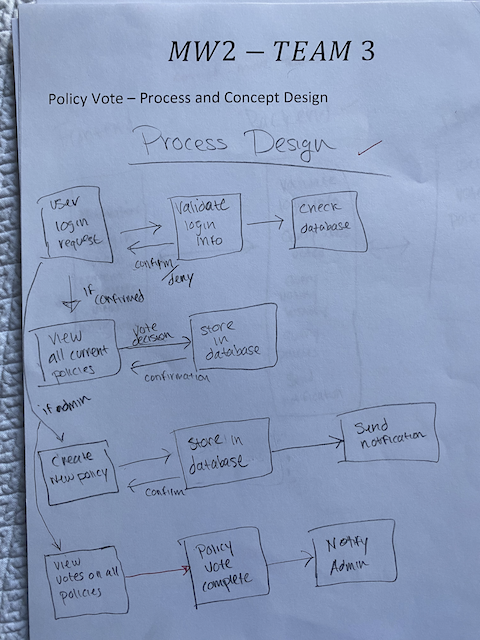 MW2 – TEAM 3
Policy Vote – Process and Concept Design
Process Design
user
login
request
Validate
login
info
check
database
confirm/
deny
if
confirmed
View
all current
policies
vote
decision
store
in
database
confirmation
if admin
create
new policy
store in
database
confirm
Send
notification
view
votes on all
policies
Policy
vote
complete
Notify
Admin